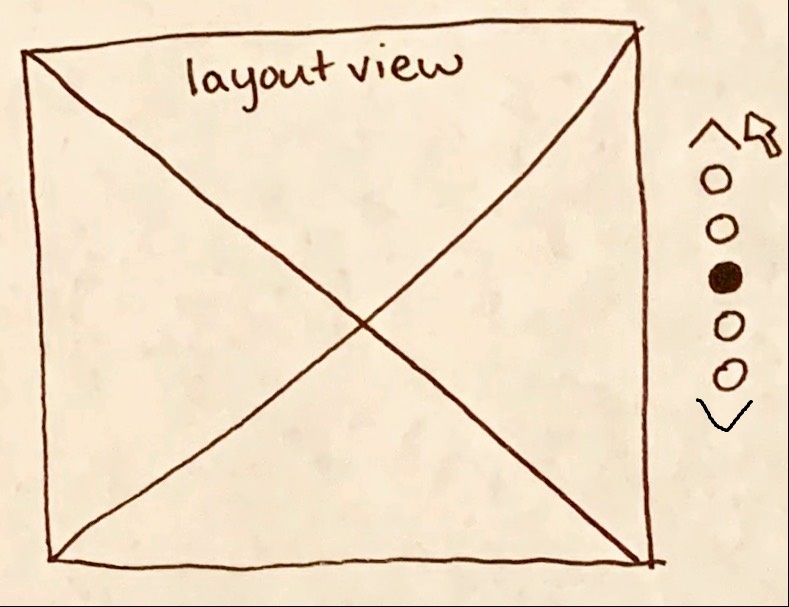 layout view